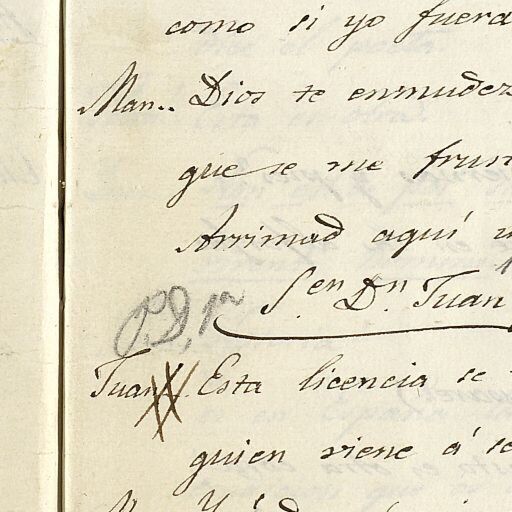 como si yo fuera
Man.. Dios te enmudez
que se me frun
Arrimad aquí u
S.en D.n Juan
P.D.1a
Juan. Esta licencia se
quien viene á se